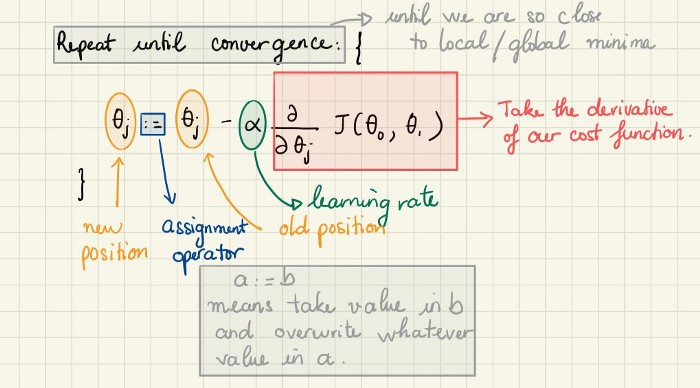 until we are so close
Repeat until convergence: {
to local/global minima
θj := θj - α ∂/∂θj J(θ0, θ1)
Take the derivative
of our cost function.
}
learning rate
new
position
assignment
operator
old position
a := b
means take value in b
and overwrite whatever
value in a.